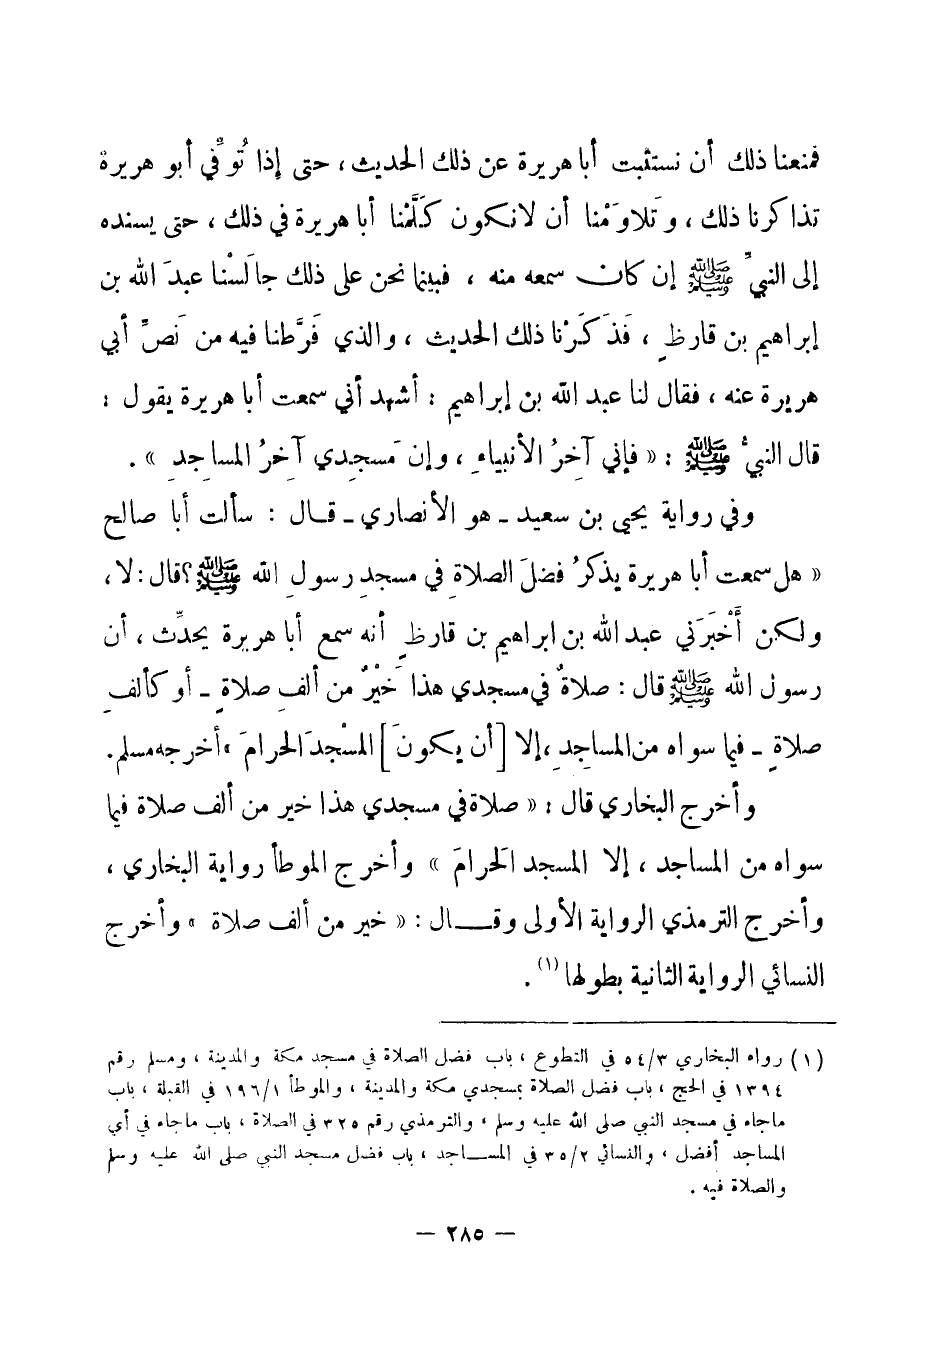 فمنعنا ذلك أن نستثبت أبا هريرة عن ذلك الحديث ، حتى إذا تُوفِّي أبو هريرة
تذاكرنا ذلك ، وَتلاوَمْنا أن لانكون كَلَّمْنا أبا هريرة في ذلك ، حتى يسنده
إلى النبيِّ ﷺ إن كان سمعه منه ، فبينما نحن على ذلك جالَسْنا عبدَ الله بن
إبراهيم بن قارظٍ ، فَذَكَرْنا ذلك الحديث ، والذي فَرَّطنا فيه من نَصِّ أبي
هريرة عنه ، فقال لنا عبد الله بن إبراهيم : أشهد أني سمعت أبا هريرة يقول :
قال النبيُّ ﷺ : « فإني آخِرُ الأنبياءِ ، وإن مَسجِدي آخِرُ المساجِدِ » .
وفي رواية يحيى بن سعيد ـ هو الأنصاري ـ قال : سألت أبا صالح
« هل سمعت أبا هريرة يذكرُ فضلَ الصلاةِ في مسجدِ رسولِ الله ﷺ ؟ قال : لا ،
ولكن أَخْبَرَني عبد الله بن ابراهيم بن قارظٍ أنه سمع أبا هريرة يحدِّث ، أن
رسول الله ﷺ قال : صلاةٌ في مسجدي هذا خَيْرٌ من ألفِ صلاةٍ ـ أو كألفِ
صلاةٍ ـ فيما سواه من المساجِدِ ، إلا [أن يكونَ] المسْجدَ الحرامَ » أخرجه مسلم .
وأخرج البخاري قال : « صلاة في مسجدي هذا خير من ألف صلاة فيما
سواه من المساجد ، إلا المسجد الحَرامَ » وأخرج الموطأ رواية البخاري ،
وأخرج الترمذي الرواية الأولى وقال : « خير من ألف صلاة » وأخرج
النسائي الرواية الثانية بطولها (١) .
(١) رواه البخاري ٥٤/٣ في التطوع ، باب فضل الصلاة في مسجد مكة والمدينة ، ومسلم رقم
١٣٩٤ في الحج ، باب فضل الصلاة بمسجدي مكة والمدينة ، والموطأ ١٩٦/١ في القبلة ، باب
ماجاء في مسجد النبي صلى الله عليه وسلم ، والترمذي رقم ٣٢٥ في الصلاة ، باب ماجاء في أي
المساجد أفضل ، والنسائي ٣٥/٢ في المساجد ، باب فضل مسجد النبي صلى الله عليه وسلم
والصلاة فيه .
— ٢٨٥ —